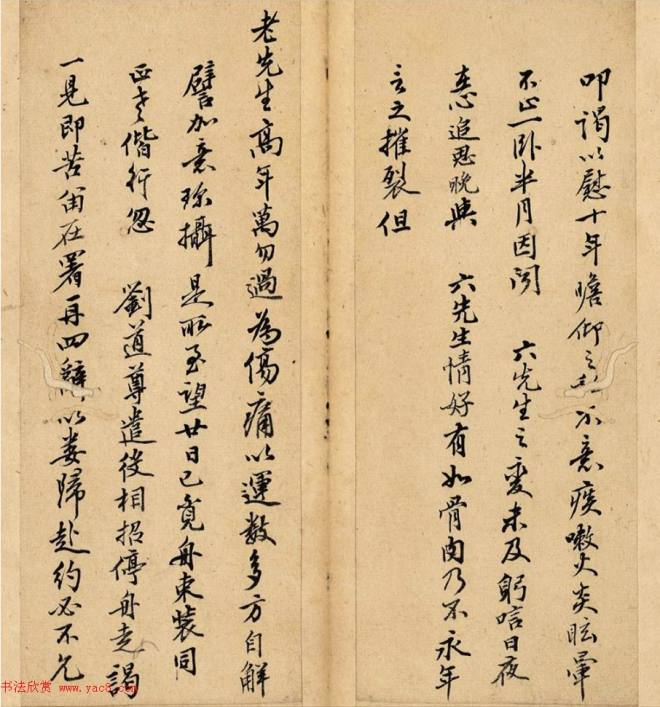 叩謁以慰十年瞻仰之私不意疾嗽火炎眩暈
不止一卧半月因聞　六先生之變未及躬唁日夜
悲追思晚與　六先生情好有如骨肉乃不永年
言之摧裂但
老先生高年萬勿過為傷痛以運數多方自解
譬加意珍攝是所至望廿日已覓舟束裝同
正老偕行忽　劉道尊遣役相招停舟走謁
一見即苦留在署再四辭以婁歸赴約必不允
书法欣赏 www.yac8.com